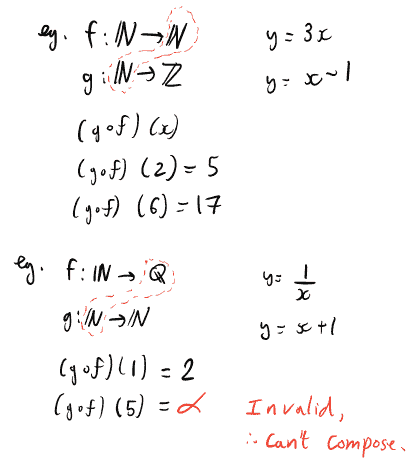 eg. f: ℕ → ℕ y = 3x
g: ℕ → ℤ y = x - 1
(g∘f)(x)
(g∘f)(2) = 5
(g∘f)(6) = 17
eg. f: ℕ → ℚ y = 1/x
g: ℕ → ℕ y = x + 1
(g∘f)(1) = 2
(g∘f)(5) = ∝ Invalid,
∴ Can't compose.